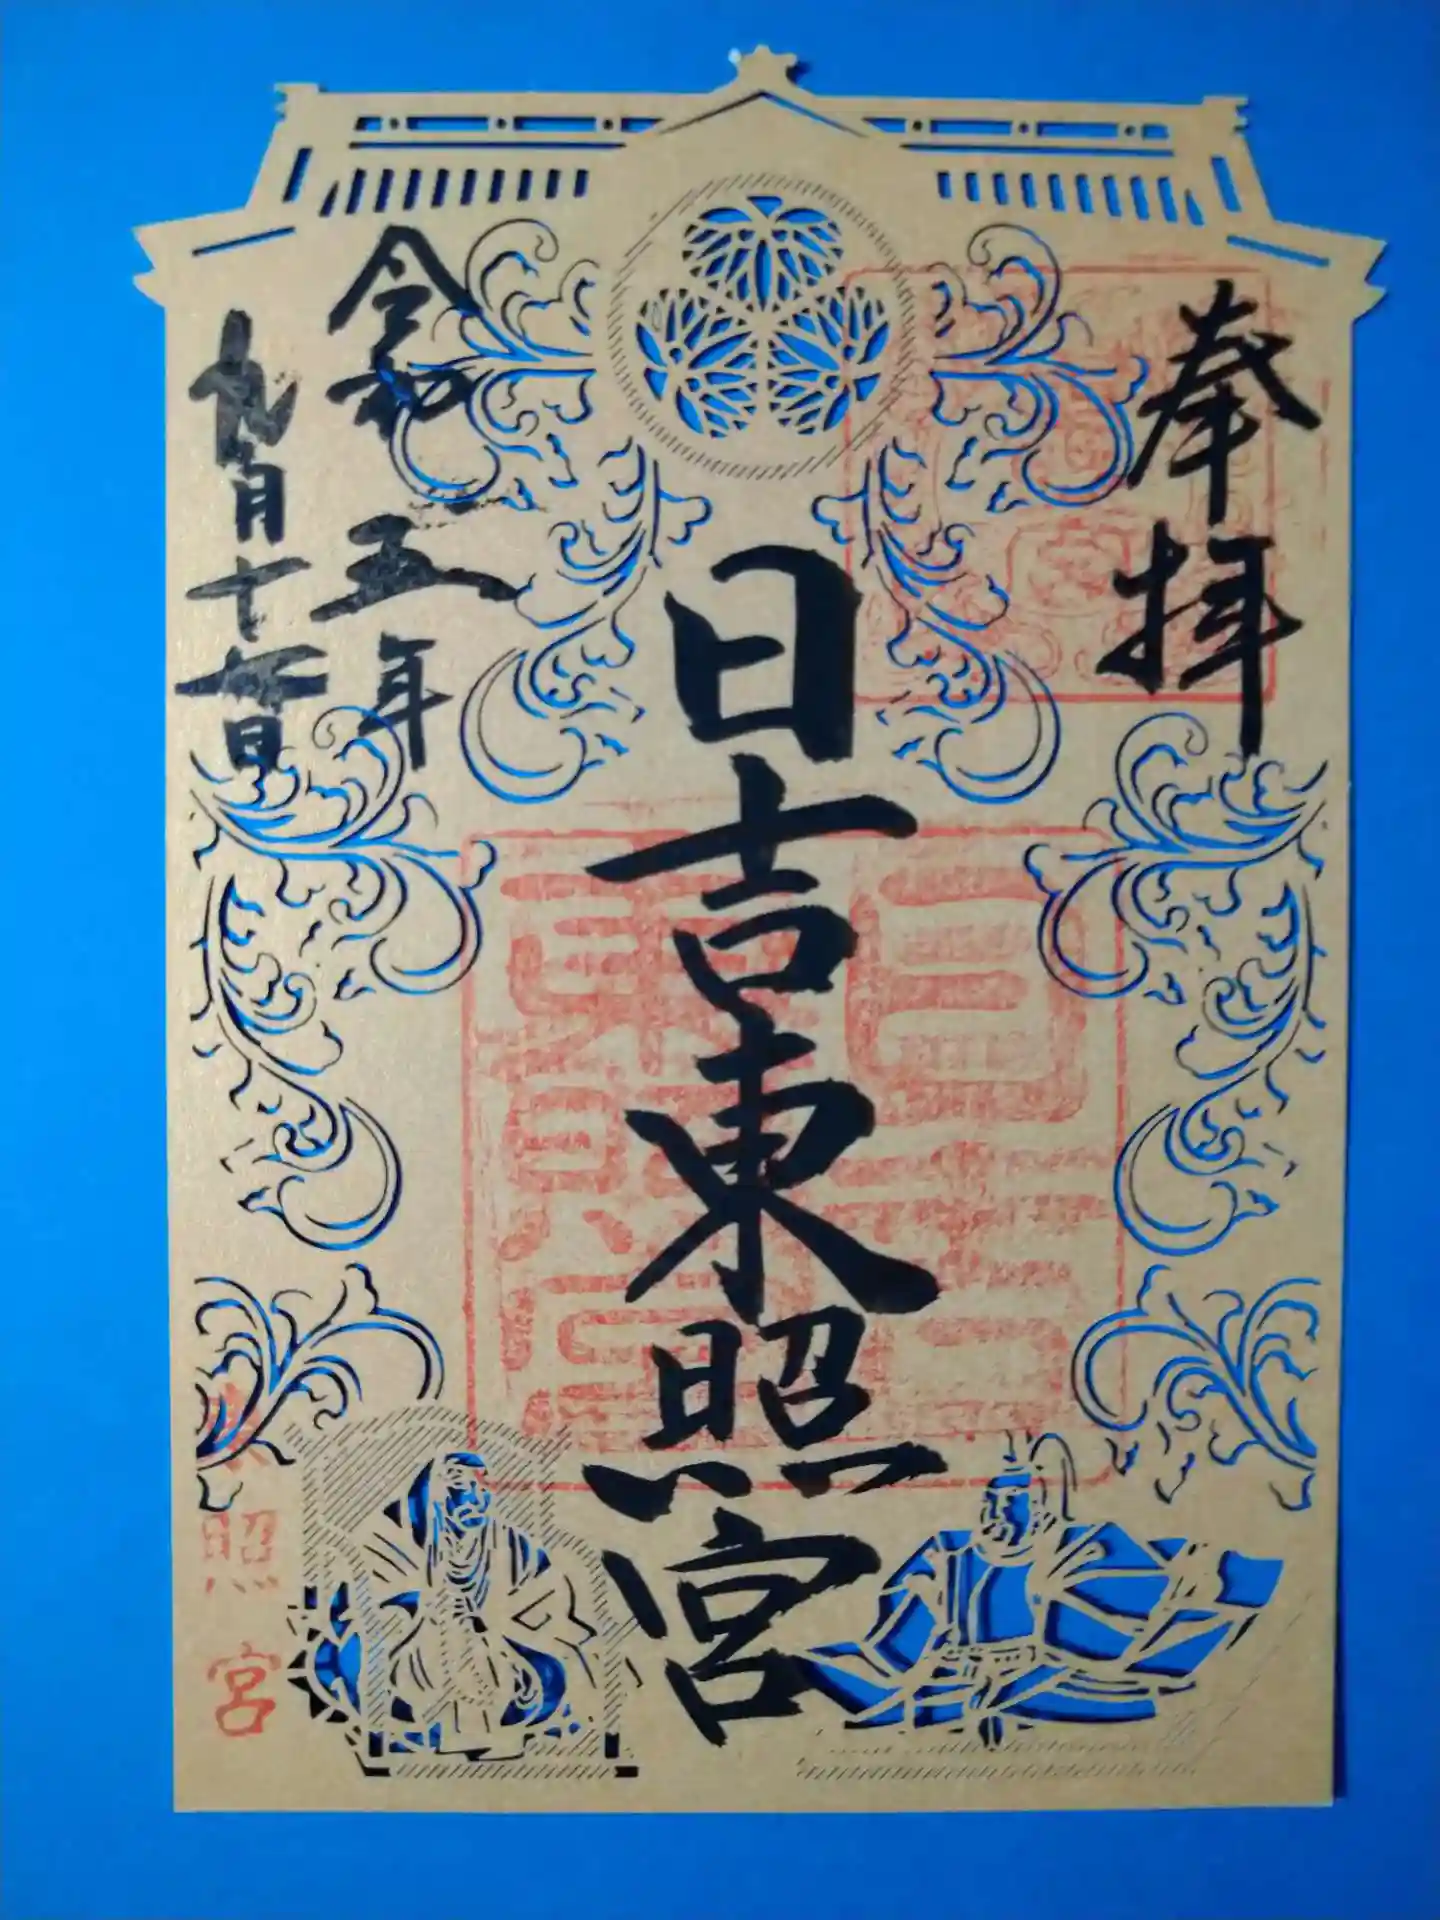 奉拝
日吉東照宮
令和五年
九月十七日
東照宮